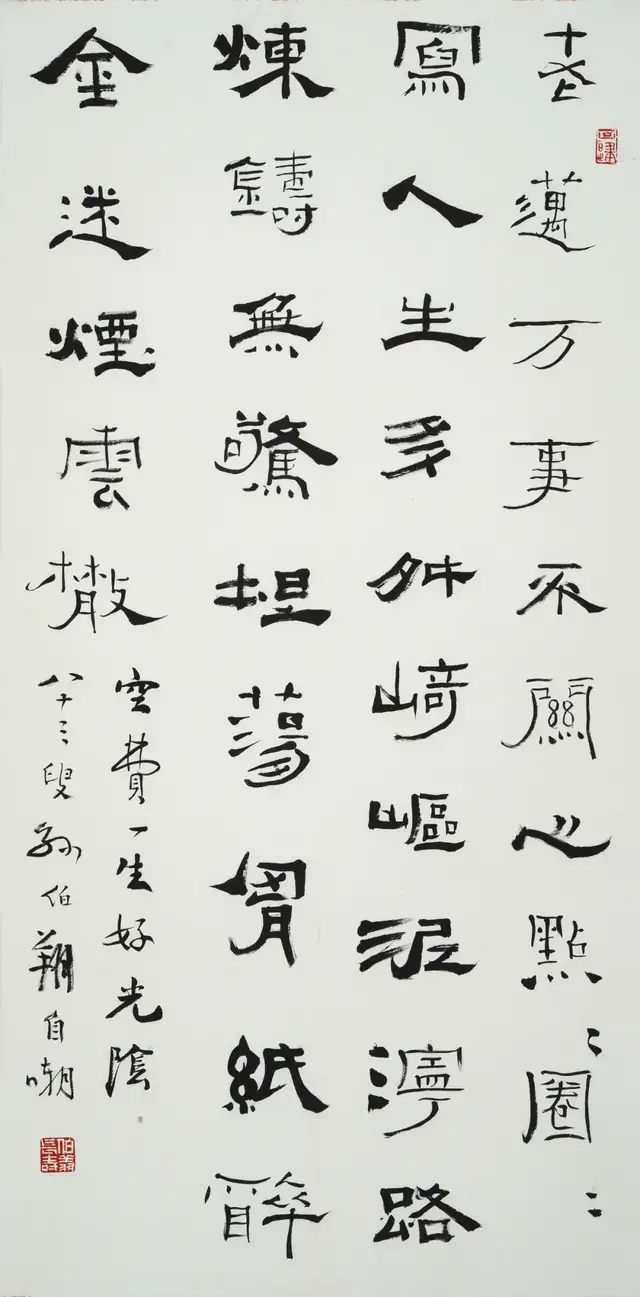 老邁万事不關心點〻圈〻
寫人生多舛崎嶇泥濘路
煉鑄無驚坦蕩胷紙醉
金迷煙雲散
空費一生好光陰
八十三叟孫伯翔自嘲